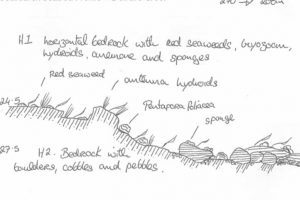 H1 horizontal bedrock with red seaweeds, bryozoans,
hydroids, anemone and sponges
red seaweed
antenna hydroids
Pentapora foliacea
sponge
24.5
27.5
H2. Bedrock with
boulders, cobbles and pebbles.